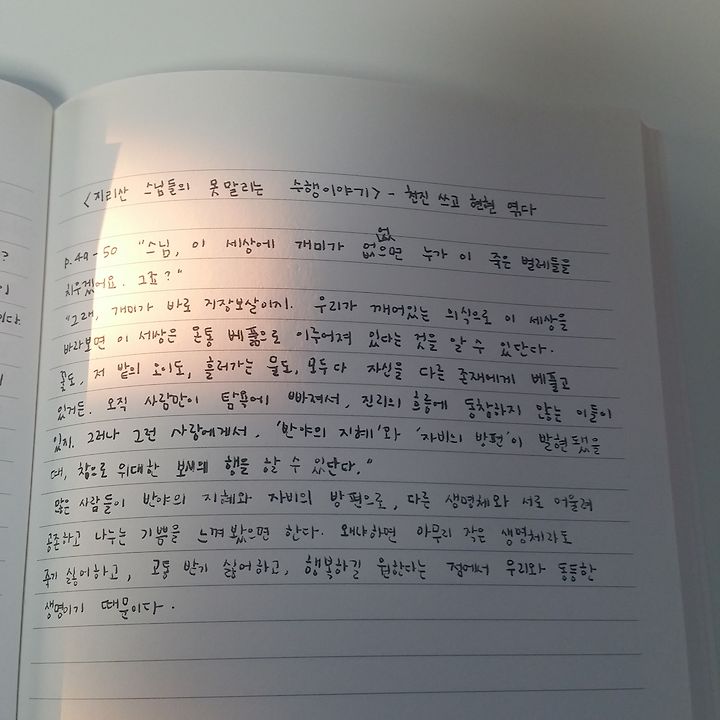 <지리산 스님들의 못말리는 수행이야기> - 현진 쓰고 현현 엮다
없
p.49-50 "스님, 이 세상에 개미가 없으면 누가 이 죽은 벌레들을
치우겠어요. 그죠?"
"그래, 개미가 바로 지장보살이지. 우리가 깨어있는 의식으로 이 세상을
바라보면 이 세상은 온통 베풂으로 이루어져 있다는 것을 알 수 있단다.
꽃도, 저 밭의 오이도, 흘러가는 물도, 모두 다 자신을 다른 존재에게 베풀고
있거든. 오직 사람만이 탐욕에 빠져서, 진리의 흐름에 동참하지 않는 이들이
있지. 그러나 그런 사람에게서, '반야의 지혜'와 '자비의 방편'이 발현됐을
때, 참으로 위대한 보살의 행을 할 수 있단다."
많은 사람들이 반야의 지혜와 자비의 방편으로, 다른 생명체와 서로 어울려
공존하고 나누는 기쁨을 느껴 봤으면 한다. 왜냐하면 아무리 작은 생명체라도
죽기 싫어하고, 고통 받기 싫어하고, 행복하길 원한다는 점에서 우리와 동등한
생명이기 때문이다.